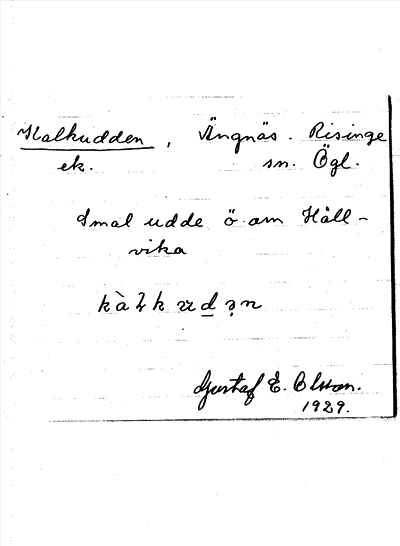 Kalkudden, Ängnäs. Risinge
ek. sn. Ögl.
Smal udde ö om Håll-
vika
Gustaf E. Olsson.
1929.